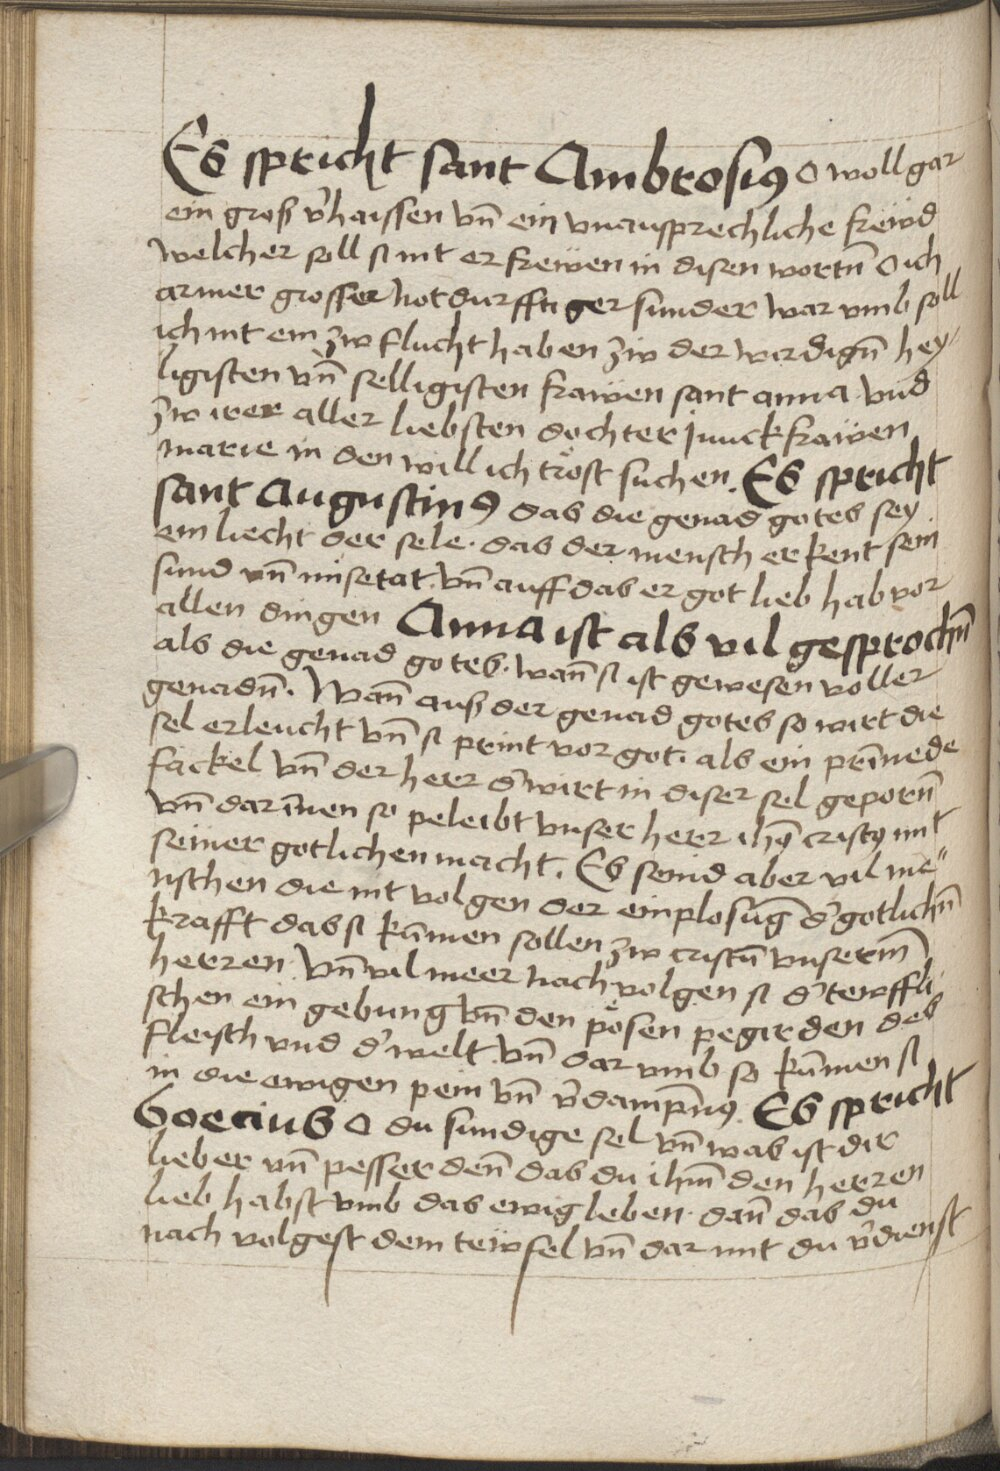 Es spricht sant Ambrosiꝰ O woll gar
ein groß v̉haissen vn̄ ein vnausprechliche frewd
welcher soll si nit erfrewen in disen wortn̄ O ich
armer grosser notdurfftiger sunder war vmb soll
ich nit ein zw flucht haben zw der wirdign̄ hey-
ligisten vn̄ selligisten frawen sant anna vnd
zw irer aller liebsten dochter junckfrawen
marie in den will ich tröst suchen. Es spricht
sant Augustinꝰ das die genad gotes sey
ein liecht der sele. das der mensch erkent sein
sund vn̄ misetat. vn̄ auff das er got lieb hab vor
allen dingen Anna ist als vil gesprochn̄
als die genad gotes. wan̄ si ist gewesen voller
genadn̄. Wan̄ auß der genad gotes so wirt die
sel erleucht vn̄ si print vor got. als ein prīnede
fackel vn̄ der herr d̉ wirt in diser sel geporn̄
vn̄ darīnen so peleibt vnser herr ihꝰ cristꝰ mit
seiner gotlichen macht. Es seind aber vil me-
nschen die nit volgen der einplosuḡ d̉ gotlichn̄
krafft das si kūmen sollen zw cristū vnserm̄
herren. Vn̄ vil meer nach volgen si d̉ tewffli
schen ein gebung vn̄ den pösen pegirden des
fleisch vnd d̉ welt. vn̄ dar vmb so kūmen si
in die ewigen pein vn̄ v̉dampnꝰ. Es spricht
Boecius O du sundige sel vn̄ was ist dir
lieber vn̄ pesser den̄ das du ihm̄ den herren
lieb habst vmb das ewig leben. dan̄ das du
nach volgest dem tewfel vn̄ dar mit du v̉dienst